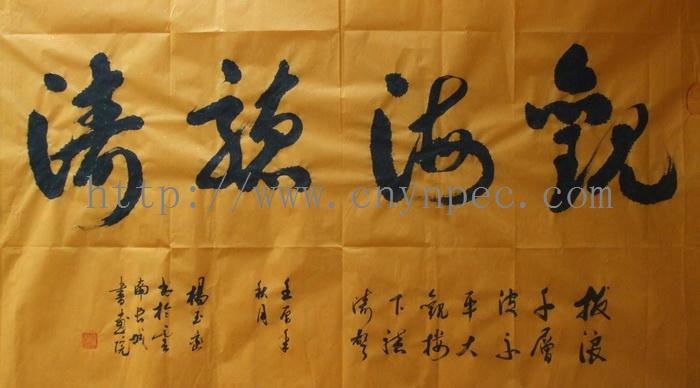 觀海聽濤
拔浪
千層
波不
平大
觀楼
下聽
濤聲
壬辰年
秋月
楊玉
書於雲
南长城
書畫院
http://www.cnynpec.com